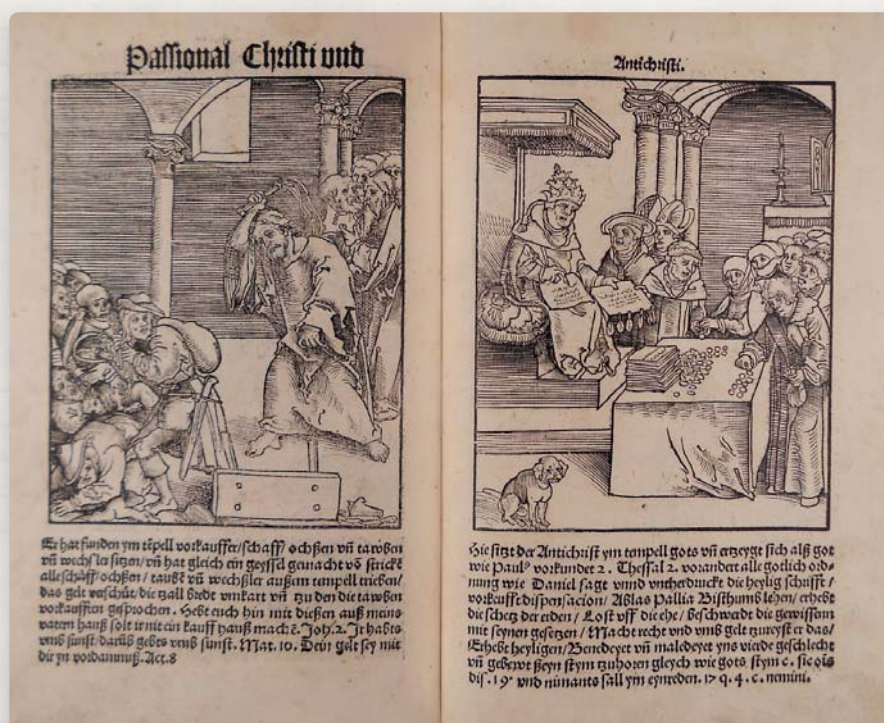 Passional Christi und
Er hat funden ym tẽpell vorkauffer/schaff/ ochßen vñ tawben
vñ wechsler sitzen/vñ hat gleich ein geyssel gemacht võ stricke
alle schaff/ochßen/taubẽ vñ wechßler außem tempell trieben/
das gelt verschüt/die tzall bredt umkart vñ tzu den die tawben
vorkaufften gesprochen. Hebt euch hin mit dießen auß meins
vatern hauß solt ir nit ein kauff hauß machẽ. Joh. 2. Ir habts
umb sunst/darũb gebts umb sunst. Mat. 10. Dein gelt sey mit
dir yn vordamnuß. Act. 8
Antichristi.
Hie sitzt der Antichrist ym tempell gots vñ ertzeygt sich alß got
wie Paulꝰ vorkundet 2. Thessal 2. vorandert alle gotlich ord-
nung wie Daniel sagt unnd untherdruckt die heylig schrifft/
vorkeufft dispensacion/Ablas Pallia Bisthumb lehen/ erhebt
die schetz der erden/Lost uff die ehe/beschwerdt die gewissenn
mit seynen gesetzen/Macht recht und umb gelt tzureyst er das/
Erhebt heyligen/Benedeyet vñ maledeyet yns vierde geschlecht
vñ gebewt ßeyn stym tzuhoren gleych wie gots stym c. sic oĩs
dis. 19. und nimants sall ym eynreden. 17 q. 4. c. nemini.